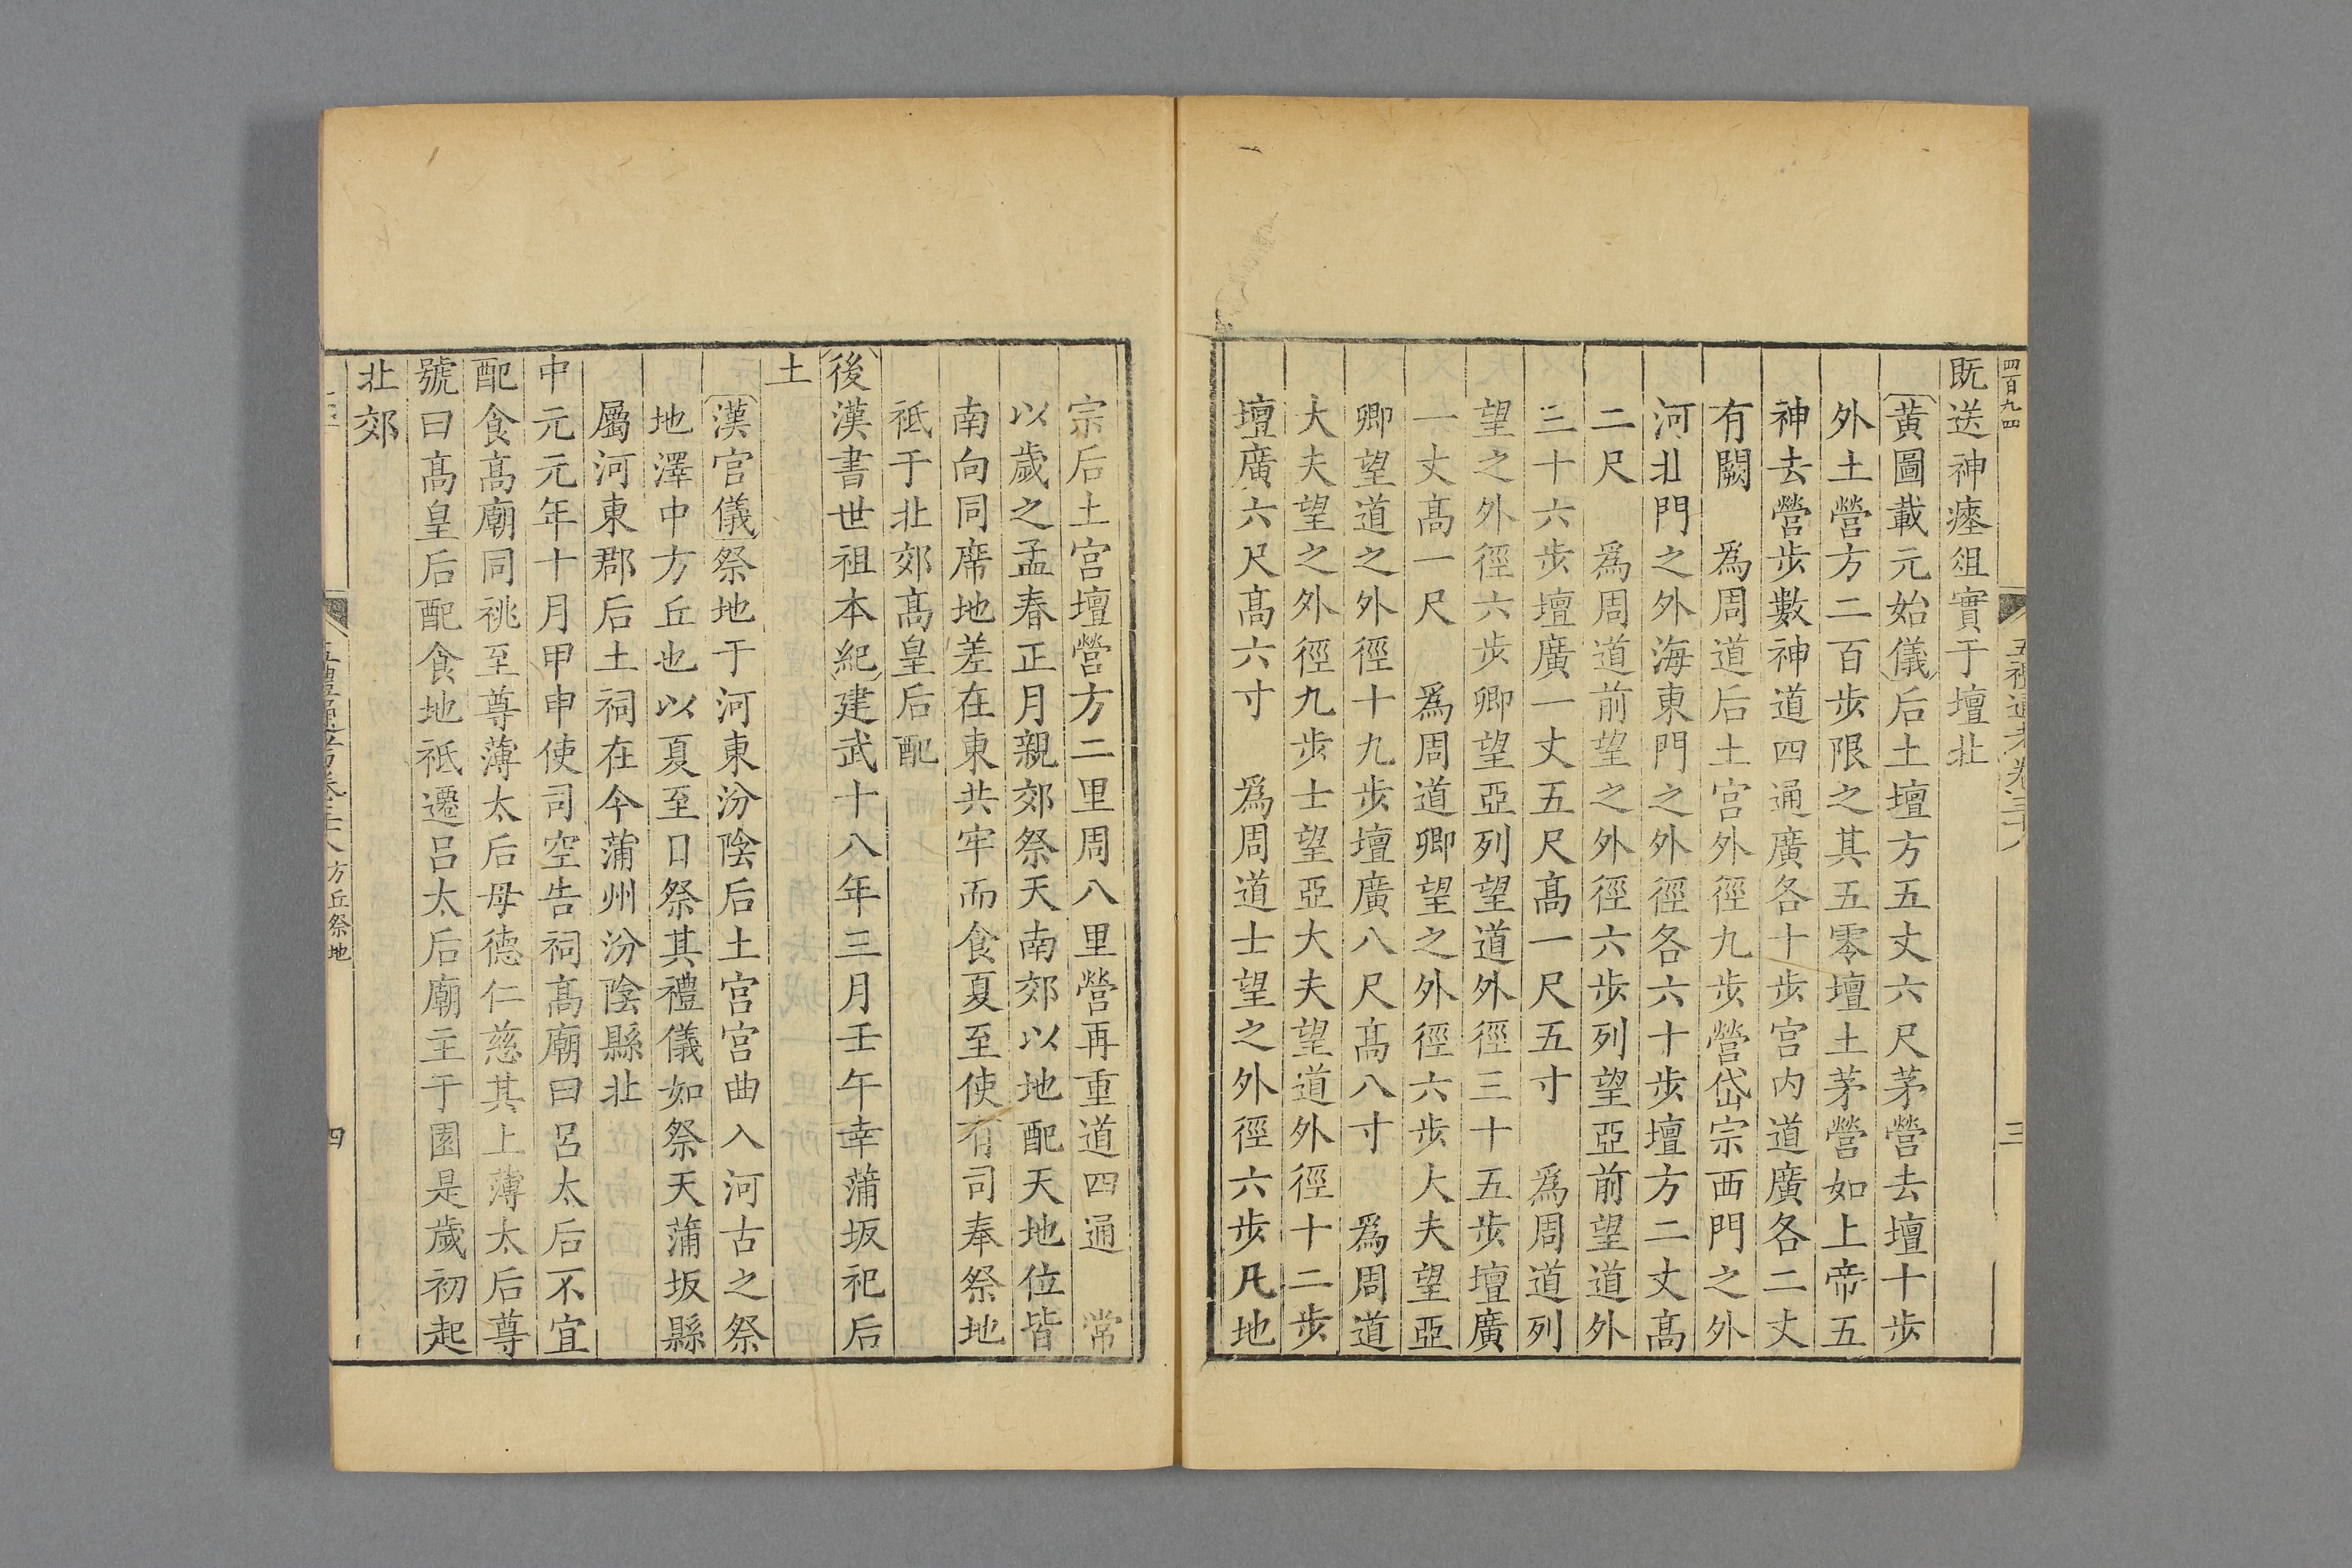 四百九四
五禮通考卷三十八
三
既送神瘞俎實于壇北
黄圖載元始儀后土壇方五丈六尺茅營去壇十步
外土營方二百步限之其五零壇土茅營如上帝五
神去營步數神道四通廣各十步宫内道廣各二丈
有闕　爲周道后土宫外徑九步營岱宗西門之外
河北門之外海東門之外徑各六十步壇方二丈高
二尺　爲周道前望之外徑六步列望亞前望道外
三十六步壇廣一丈五尺高一尺五寸　爲周道列
望之外徑六步卿望亞列望道外徑三十五步壇廣
一丈高一尺　爲周道卿望之外徑六步大夫望亞
卿望道之外徑十九步壇廣八尺高八寸　爲周道
大夫望之外徑九步士望亞大夫望道外徑十二步
壇廣六尺高六寸　爲周道士望之外徑六步凡地
宗后土宫壇營方二里周八里營再重道四通　常
以歲之孟春正月親郊祭天南郊以地配天地位皆
南向同席地差在東共牢而食夏至使有司奉祭地
祗于北郊高皇后配
後漢書世祖本紀建武十八年三月壬午幸蒲坂祀后
土
漢官儀祭地于河東汾陰后土宫宫曲入河古之祭
地澤中方丘也以夏至日祭其禮儀如祭天蒲坂縣
屬河東郡后土祠在今蒲州汾陰縣北
中元元年十月甲申使司空告祠高廟曰呂太后不宜
配食高廟同祧至尊薄太后母德仁慈其上薄太后尊
號曰高皇后配食地祗遷呂太后廟主于園是歲初起
北郊
五禮通考卷三十八 方丘祭地
四